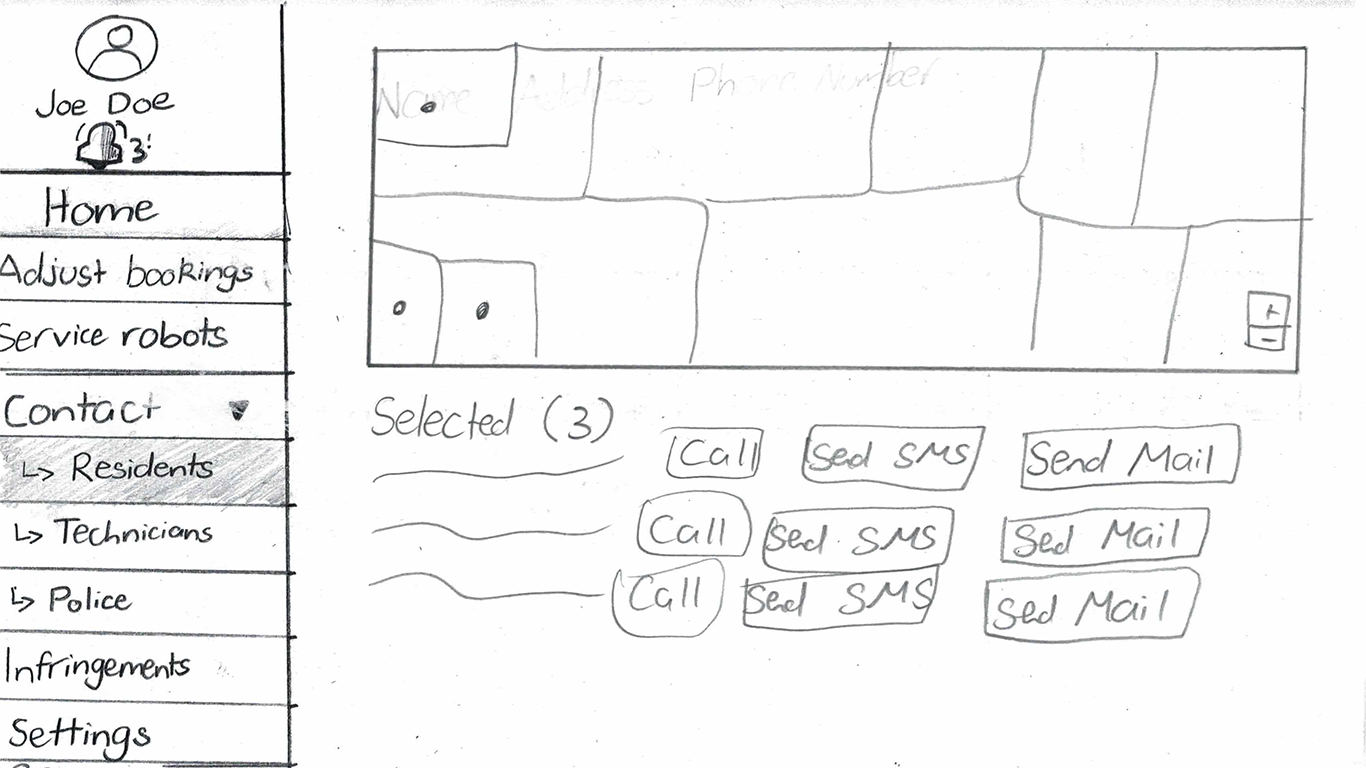 Joe Doe
3
Home
Adjust bookings
Service robots
Contact
Residents
Technicians
Police
Infringements
Settings
Name Address Phone Number
+
-
Selected (3)
Call Sed SMS Send Mail
Call Sed SMS Sed Mail
Call Sed SMS Sed Mail